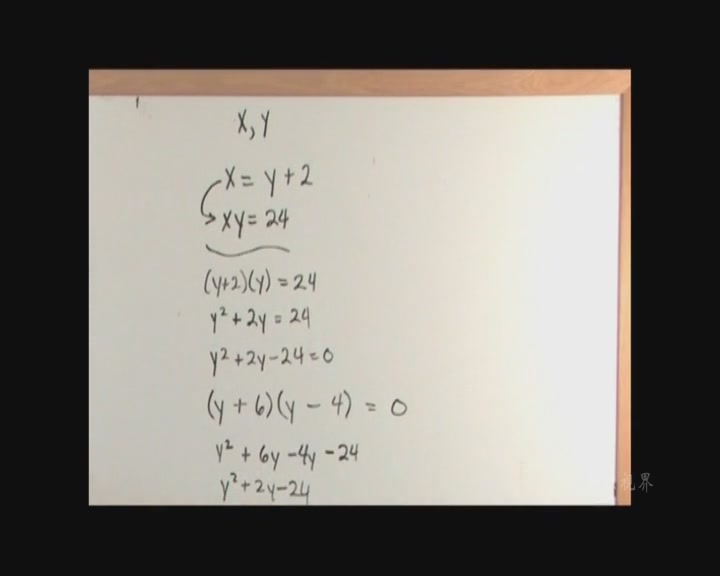 X, Y
X = Y + 2
XY = 24
(y+2)(y) = 24
y² + 2y = 24
y² + 2y - 24 = 0
(y + 6)(y - 4) = 0
y² + 6y - 4y - 24
y² + 2y - 24
视界